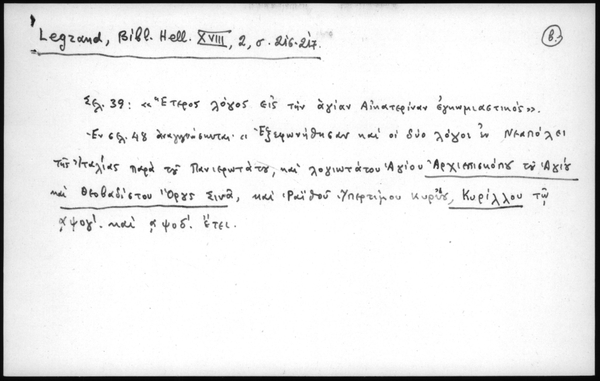 Legrand, Bibl. Hell. XVIII, 2, σ. 216-217.
β.
Σελ. 39: «Ἕτερος λόγος εἰς τὴν ἁγίαν Αἰκατερίναν ἐγκωμιαστικός».
Ἐν σελ. 48 ἀναγινώσκεται: «Ἐξεφωνήθησαν καὶ οἱ δύο λόγοι ἐν Νεαπόλει
τῆς Ἰταλίας παρὰ τοῦ Πανιερωτάτου, καὶ λογιωτάτου Ἁγίου Ἀρχιεπισκόπου τοῦ Ἁγίου
καὶ Θεοβαδίστου Ὄρους Σινᾶ, καὶ Ῥαϊθοῦ Ὑπερτίμου Κυρίου, Κυρίλλου τῷ
͵αψογʹ. καὶ ͵αψοδʹ. ἔτει.